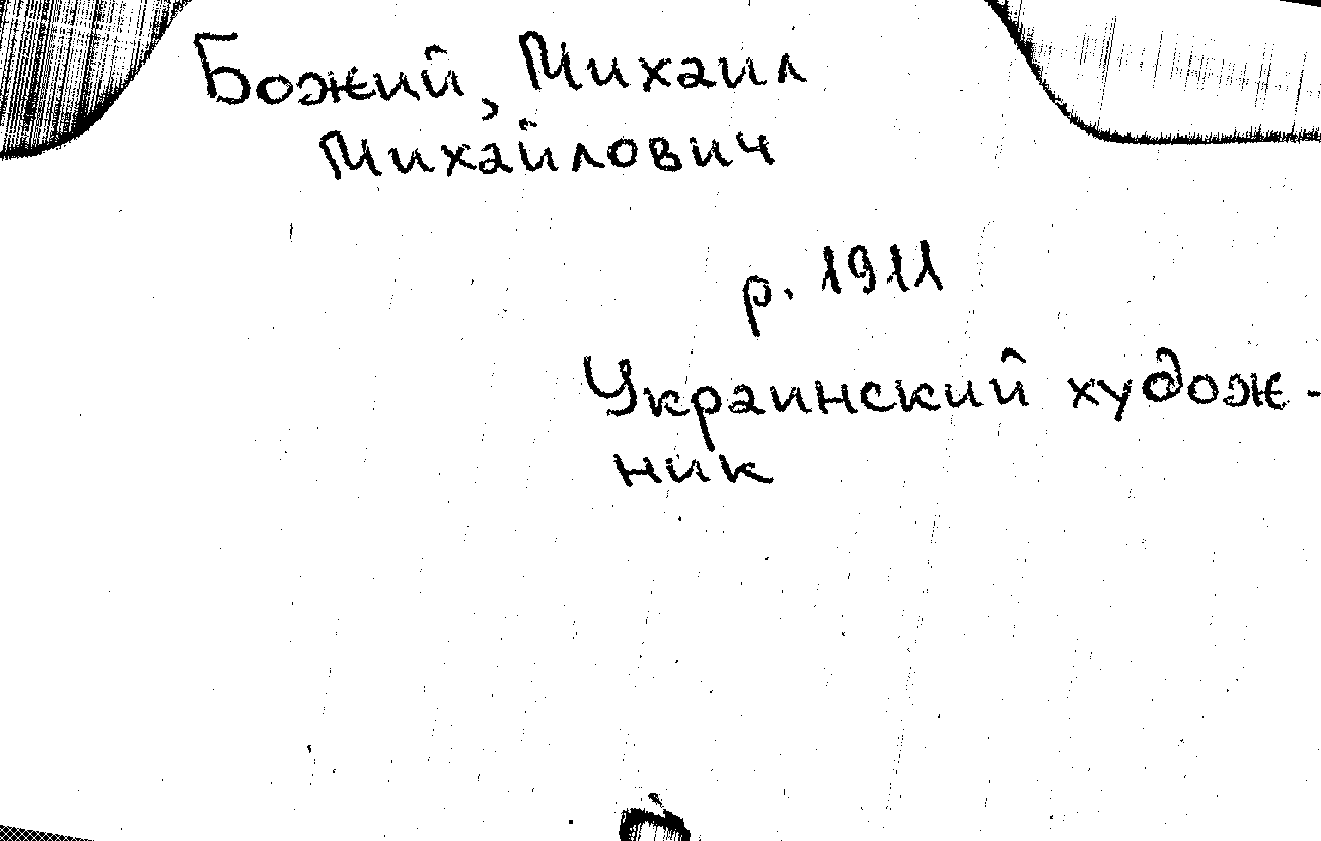 Божий, Михаил
Михайлович
р. 1911
Украинский худож-
ник